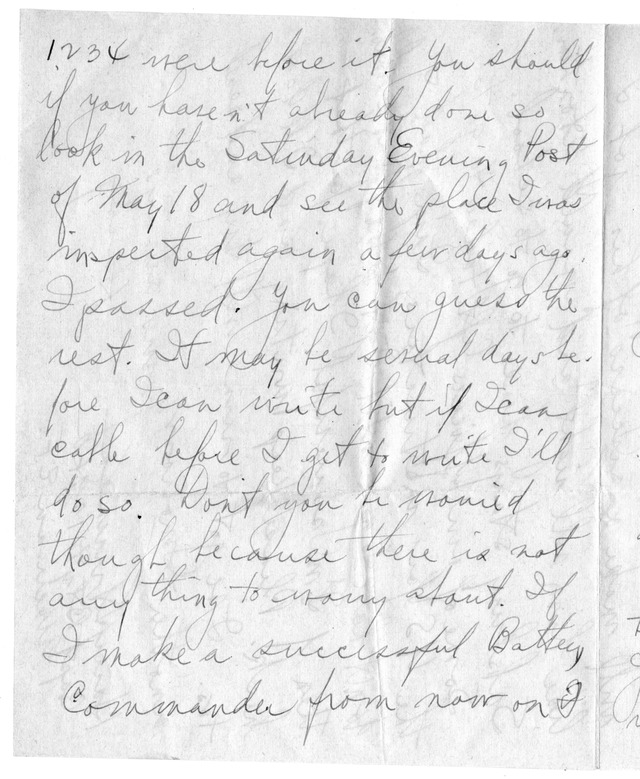 1234 were before it. You should
if you haven't already done so
look in the Saturday Evening Post
of May 18 and see the place I was
inspected again a few days ago.
I passed. You can guess the
rest. It may be several days be-
fore I can write but if I can
cable before I get to write I'll
do so. Don't you be worried
though because there is not
any thing to worry about. If
I make a successful Battery
Commander from now on I